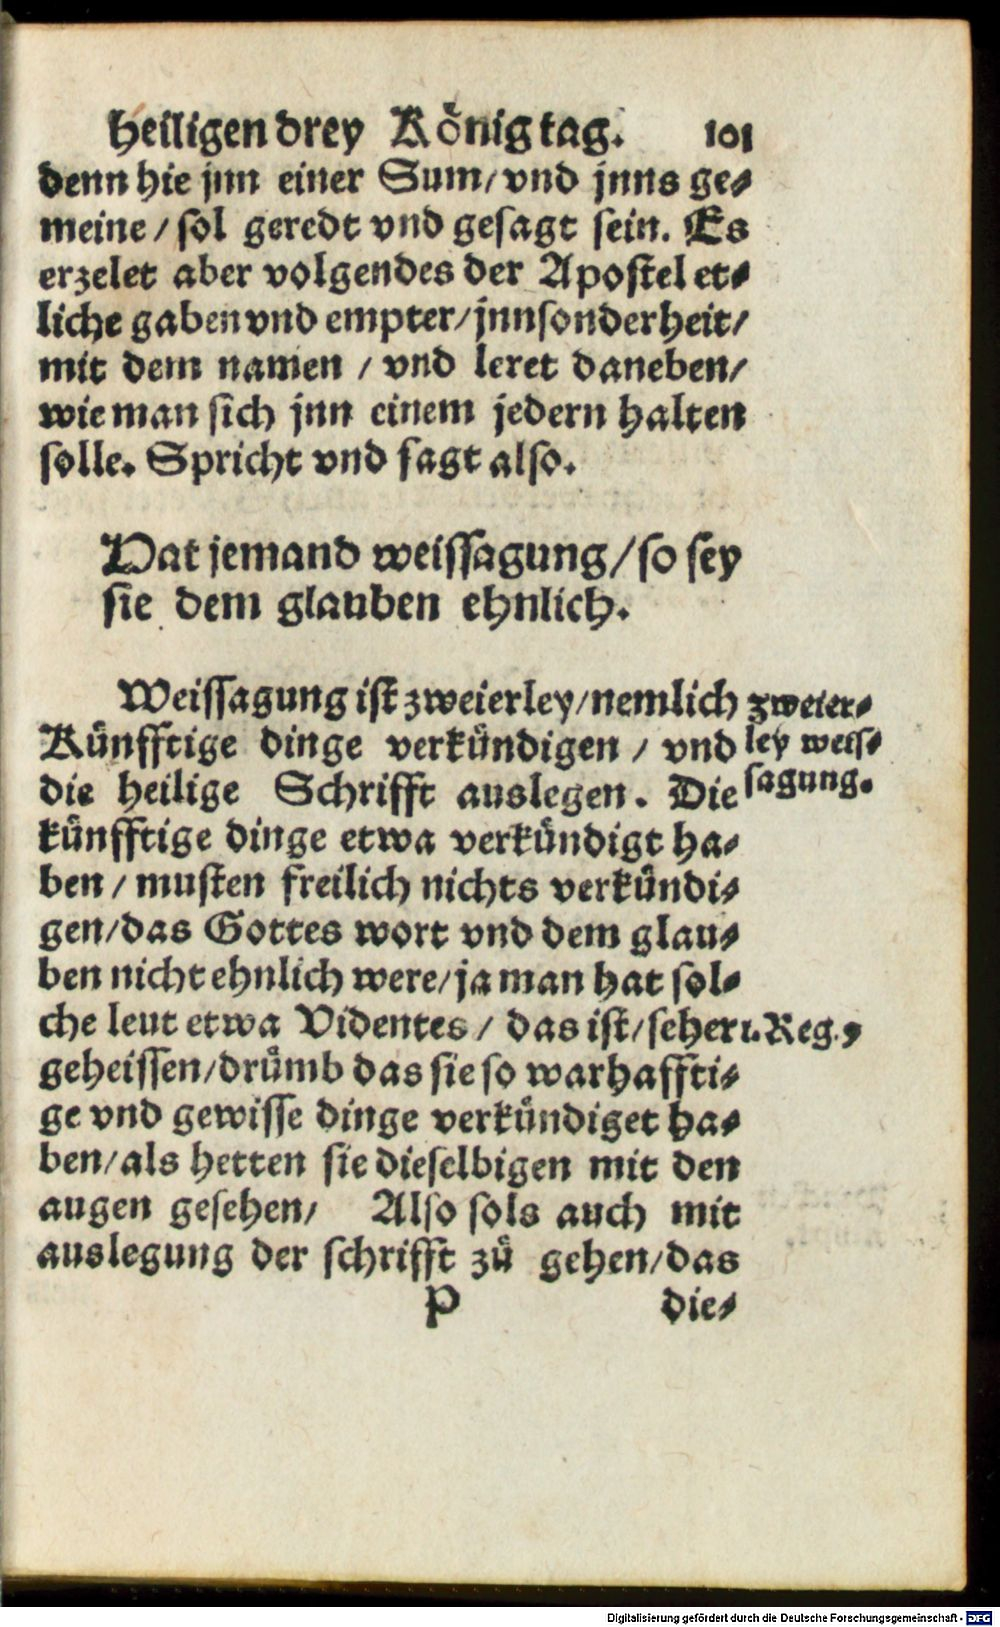 heiligen drey König tag. 101
denn hie jnn einer Sum/vnd jnns ge-
meine/sol geredt vnd gesagt sein. Es
erzelet aber volgendes der Apostel et-
liche gaben vnd empter/jnnsonderheit/
mit dem namen/vnd leret daneben/
wie man sich jnn einem jedern halten
solle. Spricht vnd sagt also.
Hat jemand weissagung/so sey
sie dem glauben ehnlich.
Weissagung ist zweierley/nemlich
Künfftige dinge verkündigen/vnd
die heilige Schrifft auslegen. Die
künfftige dinge etwa verkündigt ha-
ben/musten freilich nichts verkündi-
gen/das Gottes wort vnd dem glau-
ben nicht ehnlich were/ja man hat sol-
che leut etwa Videntes/das ist/seher
geheissen/drümb das sie so warhaffti-
ge vnd gewisse dinge verkündiget ha-
ben/als hetten sie dieselbigen mit den
augen gesehen/ Also sols auch mit
auslegung der schrifft zů gehen/das
P die-
zweier-
ley weis-
sagung.
1. Reg. 9
Digitalisierung gefördert durch die Deutsche Forschungsgemeinschaft - DFG